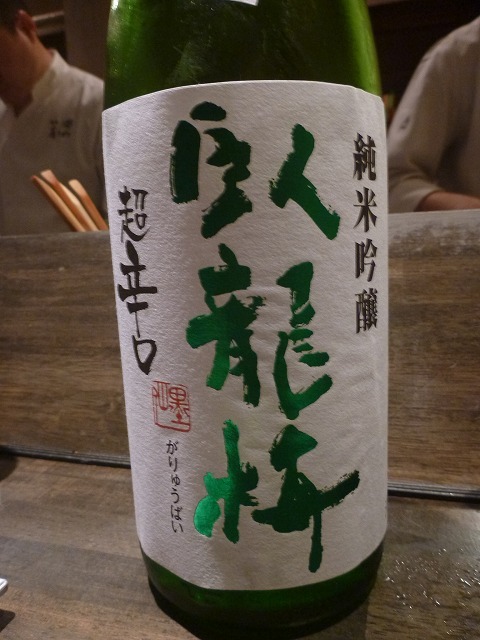 純米吟醸
臥龍梅
超辛口
がりゅうばい